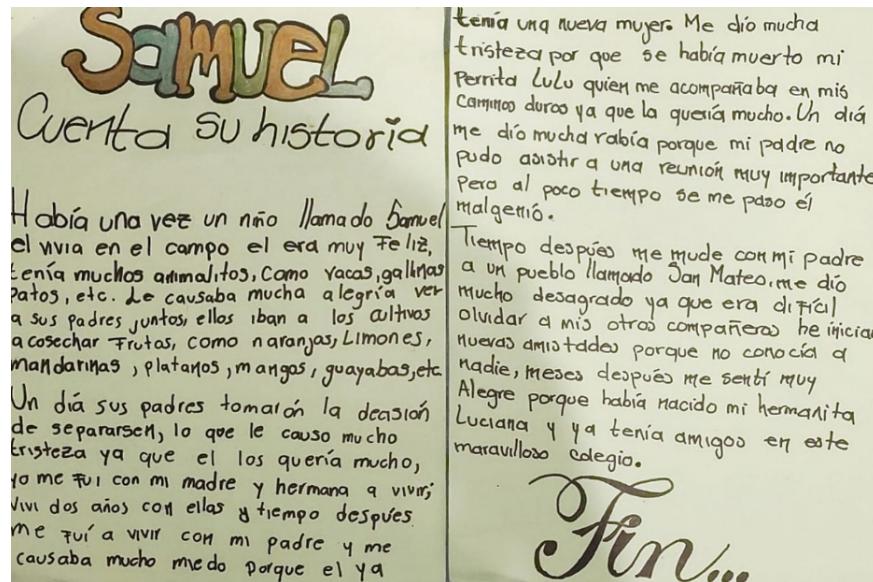 Samuel
Cuenta su historia
Había una vez un niño llamado Samuel
el vivia en el campo el era muy Feliz,
tenía muchos animalitos, Como vacas, gallinas
Patos, etc. Le causaba mucha alegría ver
a sus padres juntos, ellos iban a los cultivos
a cosechar Frutas, como naranjas, Limones,
mandarinas, platanos, mangos, guayabas, etc
Un diá sus padres tomarón la decisión
de separarsen, lo que le causo mucho
tristeza ya que el los quería mucho,
yo me Fui con mi madre y hermana a vivir,
Vivi dos años con ellas y tiempo despúes
me Fuí a vivir con mi padre y me
causaba mucho miedo porque el ya
tenía una nueva mujer. Me dío mucha
tristeza por que se había muerto mi
Perrita LuLu quien me acompañaba en mis
Caminos duros ya que la quería mucho. Un diá
me dío mucha rabía porque mi padre no
pudo asistir a una reunión muy importante
Pero al poco tiempo se me paso él
malgenió.
Tiempo despúes me mude con mi padre
a un pueblo llamado San Mateo, me dío
mucho desagrado ya que era difícil
olvidar a mis otros compañeros he iniciar
nuevas amistades porque no conocía a
nadie, meses despúes me sentí muy
Alegre porque había nacido mi hermanita
Luciana y ya tenía amigos en este
maravilloso colegio.
Fin...